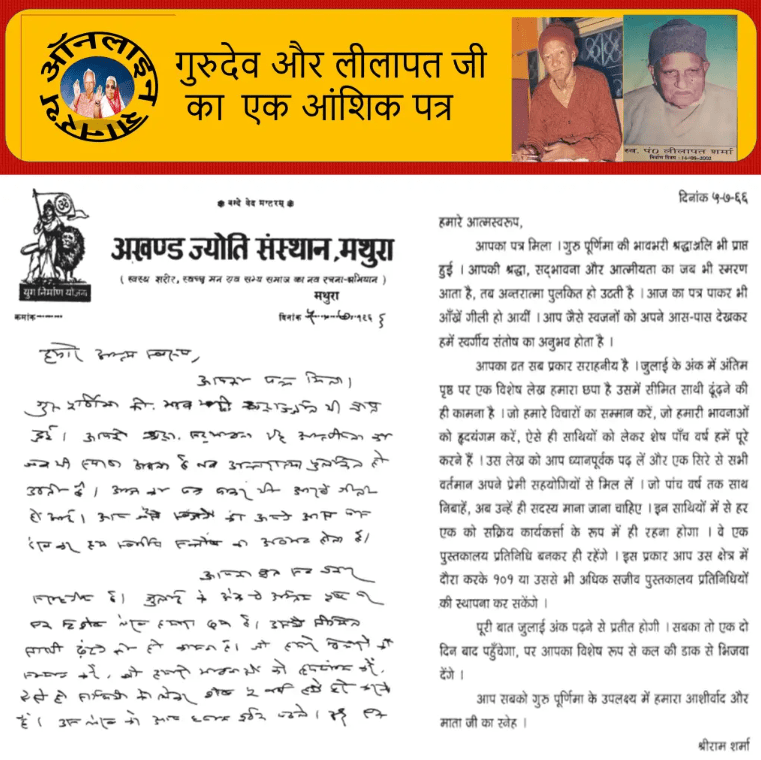 ऑनलाइन ज्ञानरथ
गुरुदेव और लीलापत जी
का एक आंशिक पत्र
स्व. पं० लीलापत शर्मा
॥ वन्दे वेद मातरम् ॥
अखण्ड ज्योति संस्थान, मथुरा
( स्वस्थ शरीर, स्वच्छ मन एवं सभ्य समाज का नव रचना-अभियान )
युग निर्माण योजना
मथुरा
क्रमांक
दिनांक ५-७-१९६६
हमारे आत्म स्वरूप,
आपका पत्र मिला।
गुरु पूर्णिमा की भाव भरी श्रद्धाञ्जलि भी प्राप्त
हुई। आपकी श्रद्धा, सद्भावना एवं आत्मीयता का
जब भी स्मरण आता है तब अन्तरात्मा पुलकित हो
उठती है। आज का पत्र पाकर भी आंखें गीली
हो आईं। आप जैसे स्वजनों को अपने आस पास
देखकर हमें स्वर्गीय सन्तोष का अनुभव होता है।
आपका व्रत सब प्रकार
सराहनीय है। जुलाई के अंक में अन्तिम पृष्ठ पर
एक विशेष लेख हमारा छपा है। उसमें सीमित
साथी ढूंढने की ही कामना है। जो हमारे विचारों का
सम्मान करें, जो हमारी भावनाओं को हृदयंगम करें,
ऐसे ही साथियों को लेकर शेष ५ वर्ष हमें पूरे करने
हैं। उस लेख को आप ध्यान पूर्वक पढ़लें।
दिनांक ५-७-६६
हमारे आत्मस्वरूप,
आपका पत्र मिला । गुरु पूर्णिमा की भावभरी श्रद्धाञ्जलि भी प्राप्त
हुई । आपकी श्रद्धा, सद्भावना और आत्मीयता का जब भी स्मरण
आता है, तब अन्तरात्मा पुलकित हो उठती है । आज का पत्र पाकर भी
आँखें गीली हो आयीं । आप जैसे स्वजनों को अपने आस-पास देखकर
हमें स्वर्गीय संतोष का अनुभव होता है ।
आपका व्रत सब प्रकार सराहनीय है । जुलाई के अंक में अंतिम
पृष्ठ पर एक विशेष लेख हमारा छपा है उसमें सीमित साथी ढूंढ़ने की
ही कामना है । जो हमारे विचारों का सम्मान करें, जो हमारी भावनाओं
को हृदयंगम करें, ऐसे ही साथियों को लेकर शेष पाँच वर्ष हमें पूरे
करने हैं । उस लेख को आप ध्यानपूर्वक पढ़ लें और एक सिरे से सभी
वर्तमान अपने प्रेमी सहयोगियों से मिल लें । जो पांच वर्ष तक साथ
निबाहें, अब उन्हें ही सदस्य माना जाना चाहिए । इन साथियों में से हर
एक को सक्रिय कार्यकर्त्ता के रूप में ही रहना होगा । वे एक
पुस्तकालय प्रतिनिधि बनकर ही रहेंगे । इस प्रकार आप उस क्षेत्र में
दौरा करके १०१ या उससे भी अधिक सजीव पुस्तकालय प्रतिनिधियों
की स्थापना कर सकेंगे ।
पूरी बात जुलाई अंक पढ़ने से प्रतीत होगी । सबका तो एक दो
दिन बाद पहुँचेगा, पर आपका विशेष रूप से कल की डाक से भिजवा
देंगे ।
आप सबको गुरु पूर्णिमा के उपलक्ष्य में हमारा आशीर्वाद और
माता जी का स्नेह ।
श्रीराम शर्मा